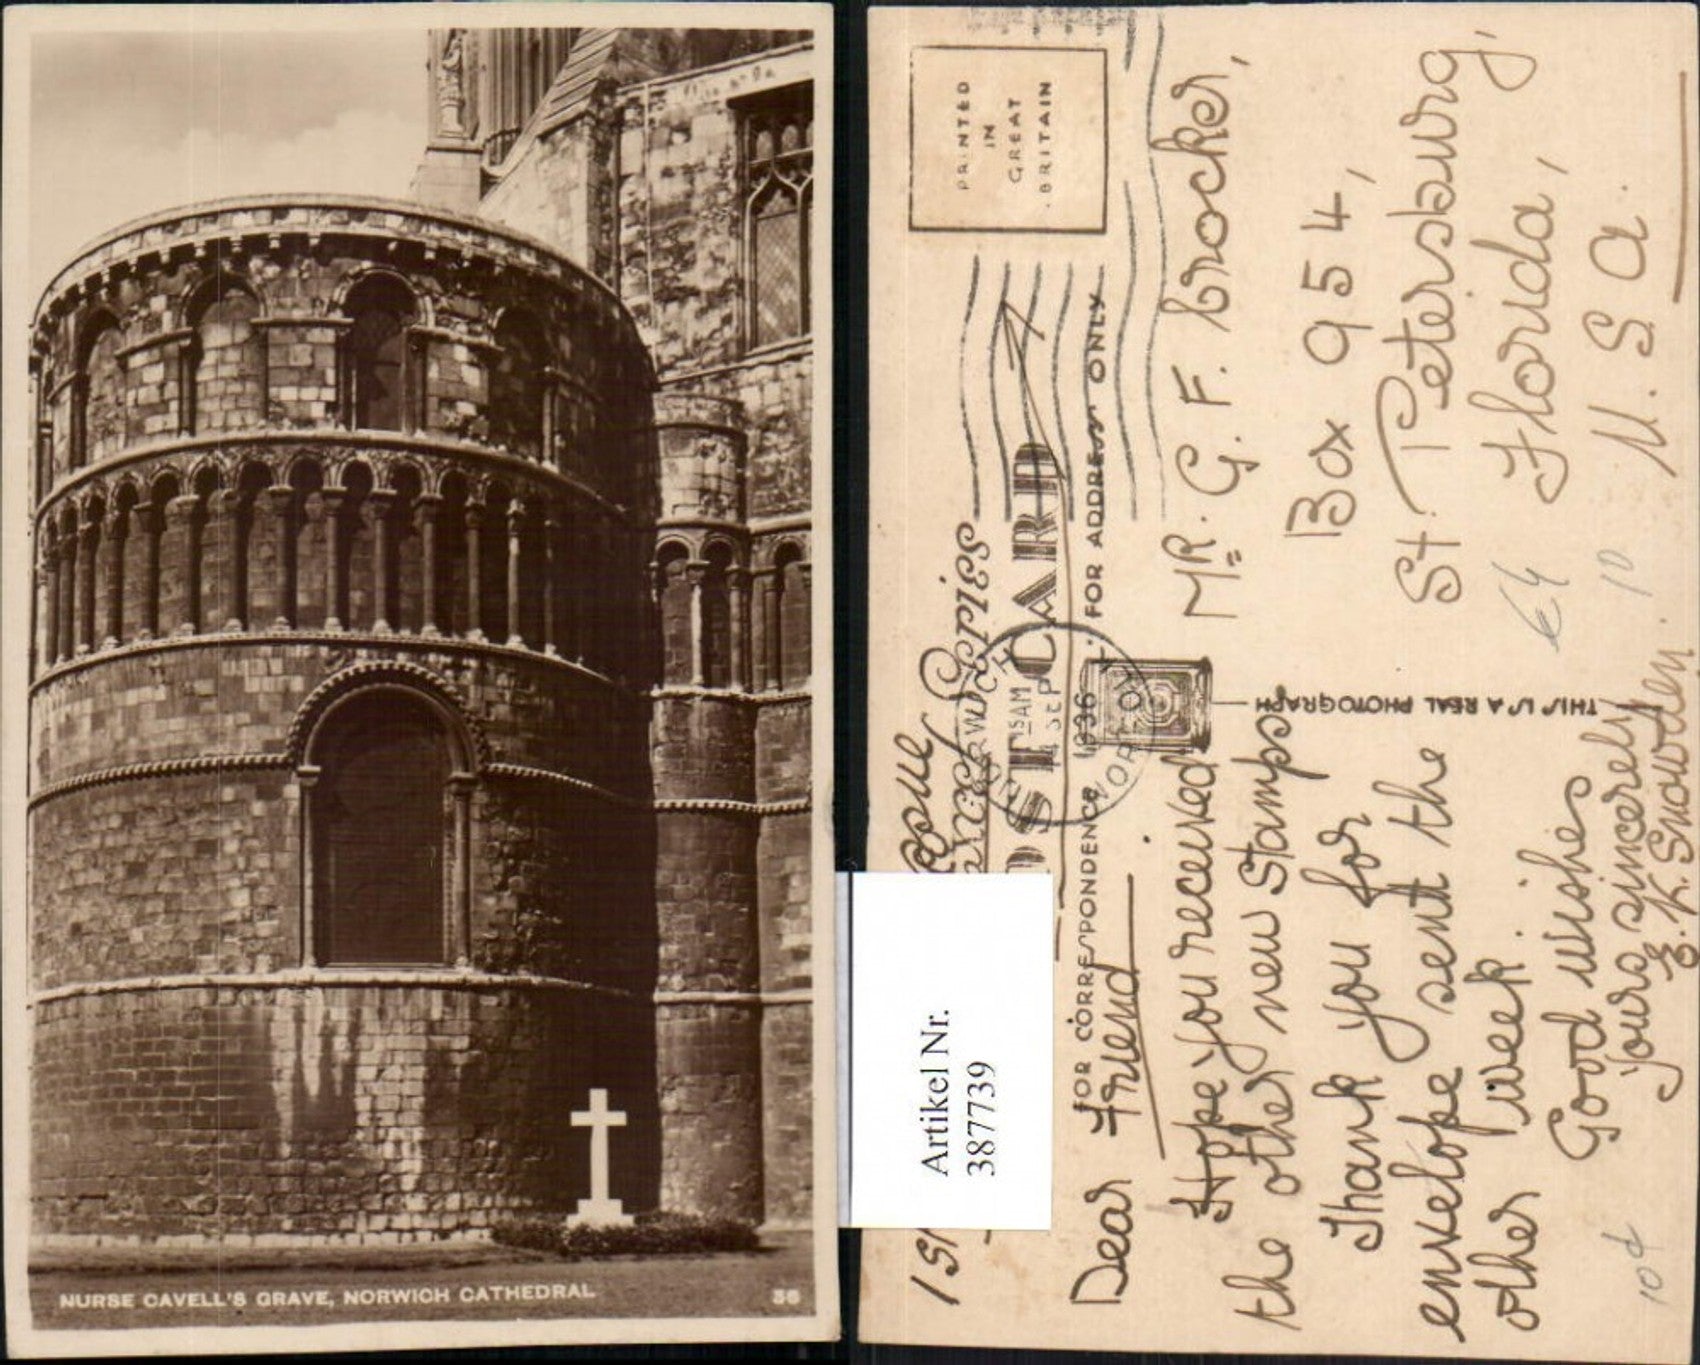 NURSE CAVELL'S GRAVE, NORWICH CATHEDRAL
36
PRINTED
IN
GREAT
BRITAIN
POST CARD
FOR CORRESPONDENCE
FOR ADDRESS ONLY
THIS IS A REAL PHOTOGRAPH
NORWICH
1 15AM
4 SEP
1936
NORFOLK
Dear Friend
Hope you received
the other new stamps
Thank you for
envelope sent the
other week.
Good wishes
Yours sincerely
E. K. Snowden.
Mr. G. F. Crocker,
Box 954,
St Petersburg,
Florida,
U. S. A.
€4
10
10d
Artikel Nr.
387739